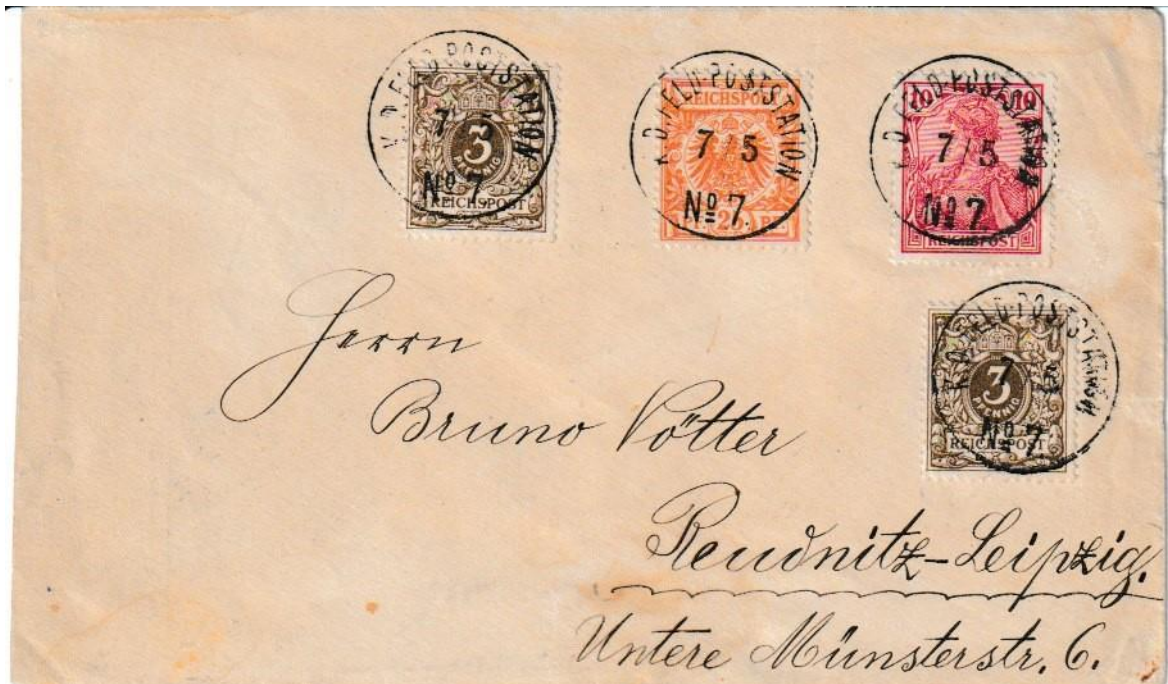 K.D. FELD-POSTSTATION
7/5
3
PFENNIG
Nº 7
REICHSPOST
K.D. FELD-POSTSTATION
REICHSPOST
7/5
Nº 7.
25
K.D. FELD-POSTSTATION
10 10
7/5
Nº 7.
REICHSPOST
K.D. FELD-POSTSTATION
7
3
PFENNIG
Nº 7
REICHSPOST
Herrn
Bruno Vötter
Reudnitz-Leipzig.
Untere Münsterstr. 6.